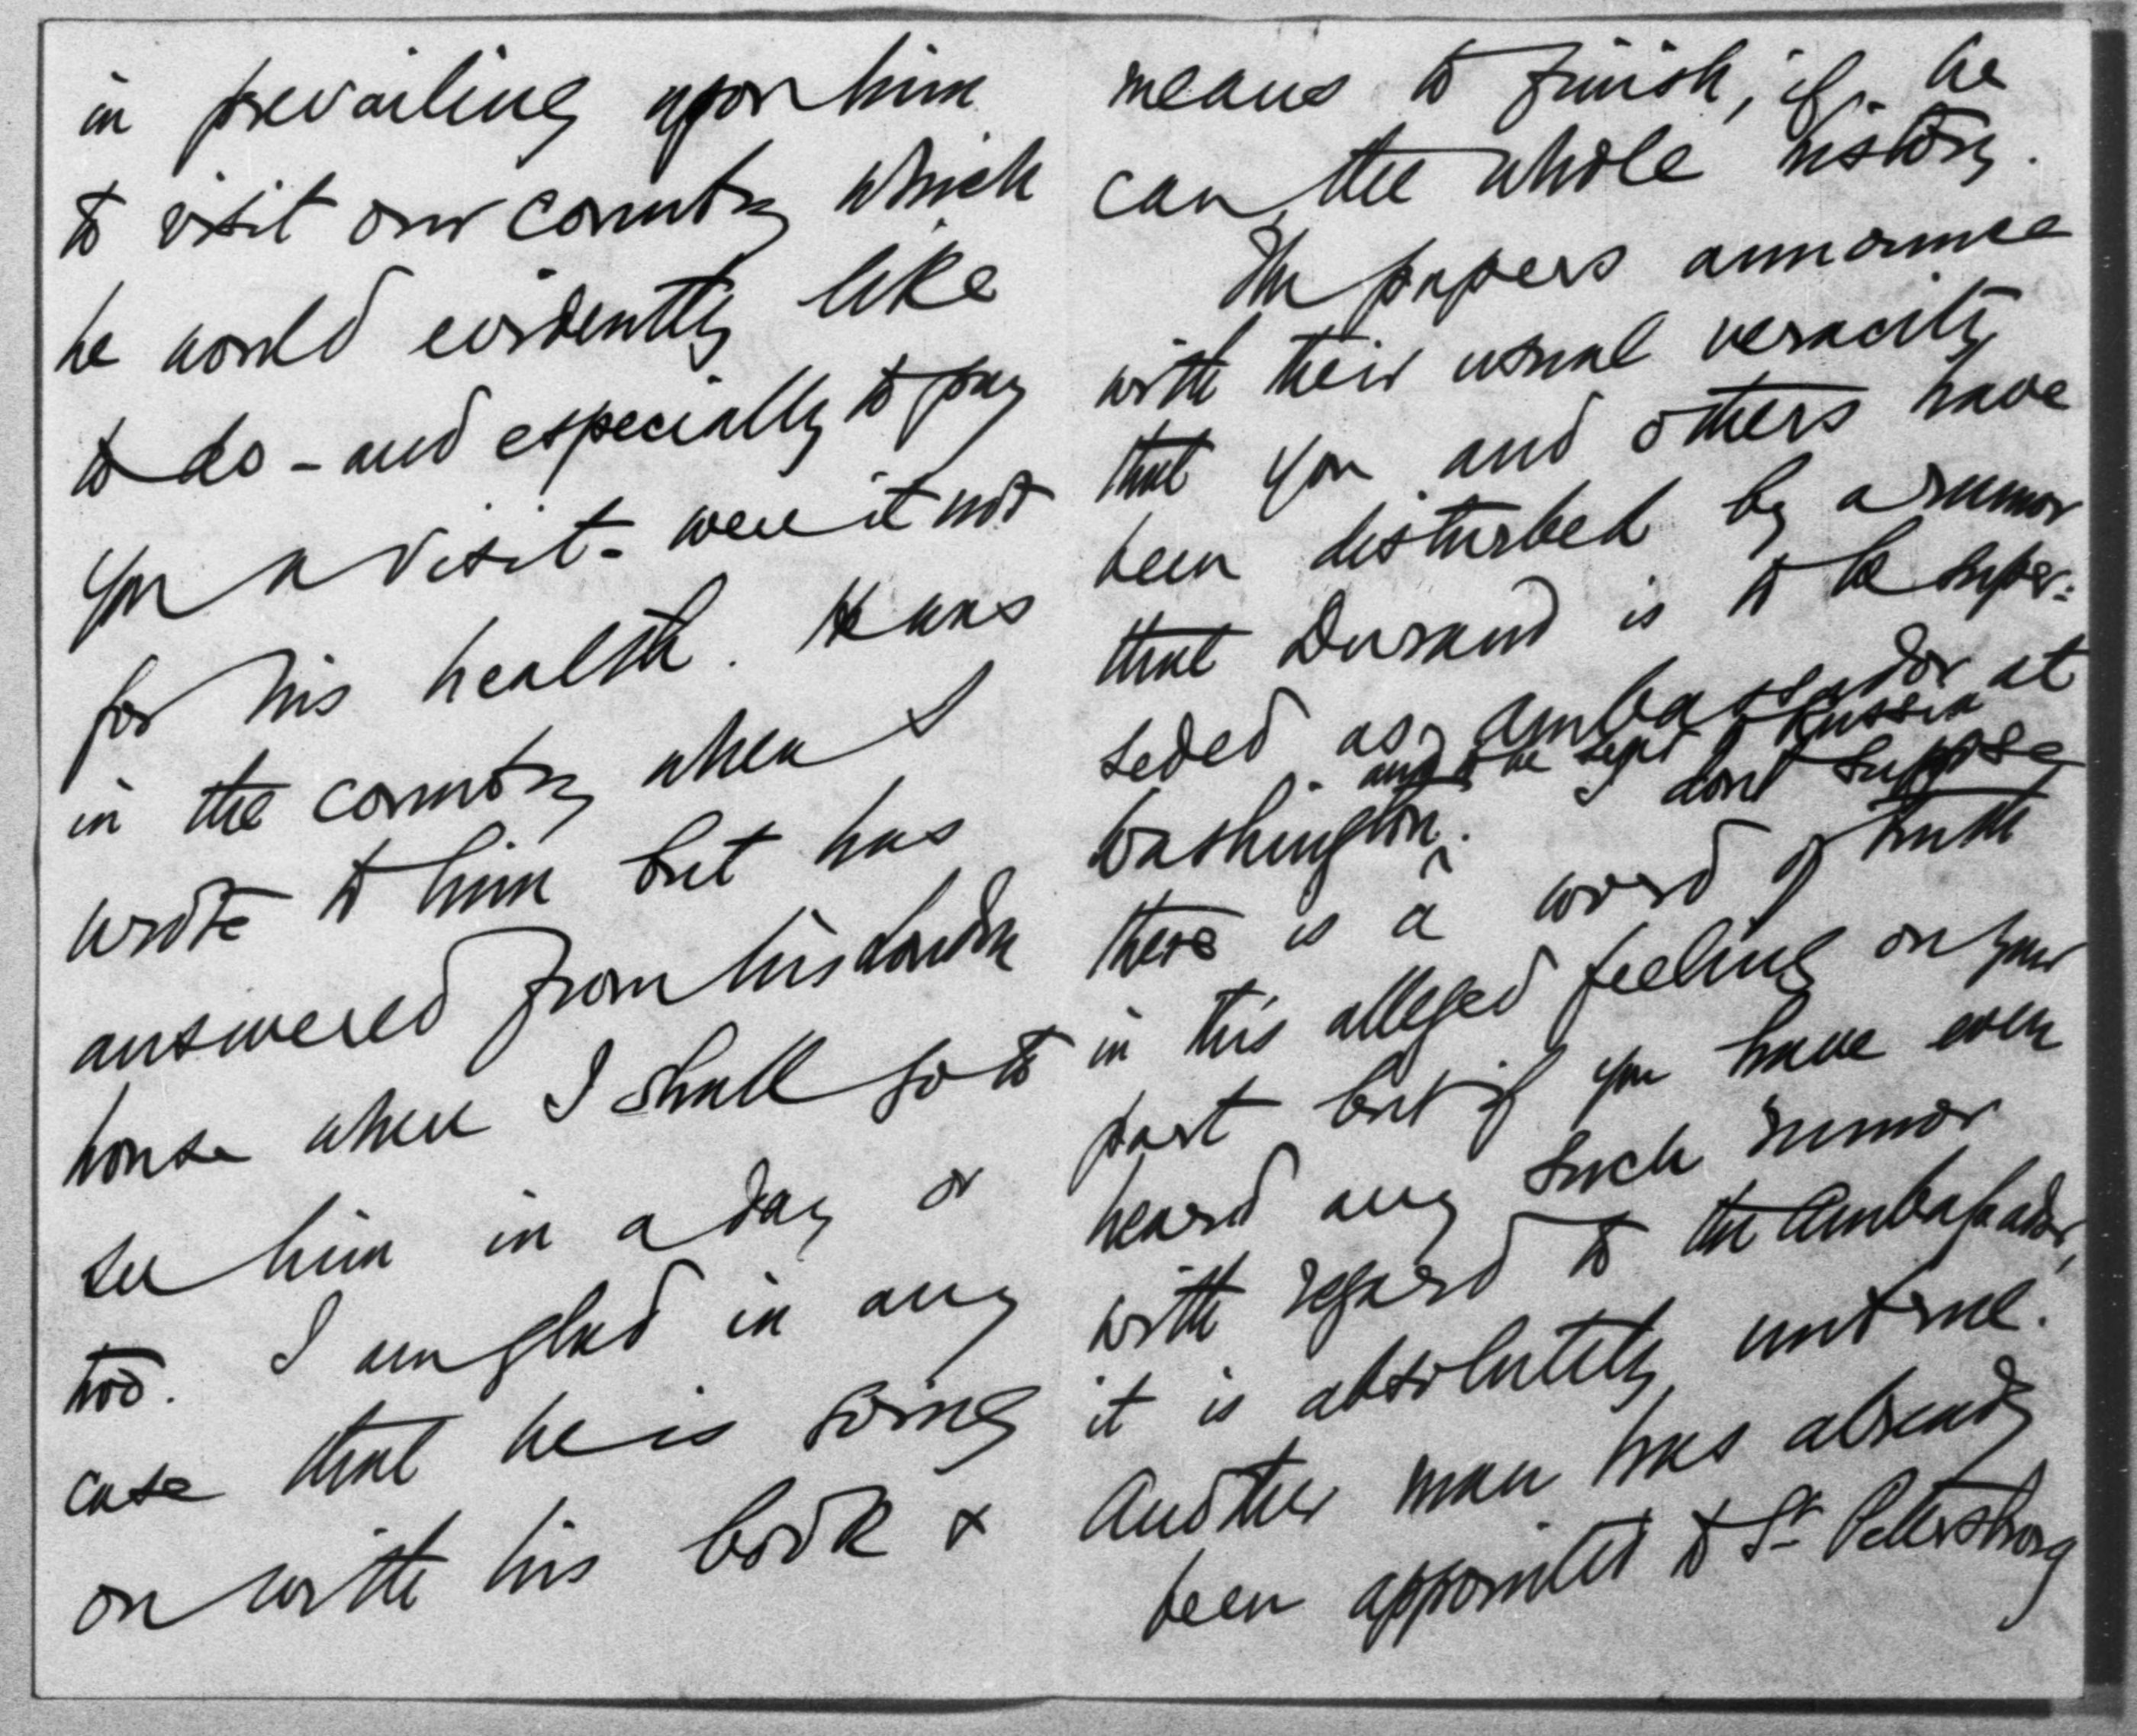 in prevailing upon him
to visit our country which
he would evidently like
to do - and especially to pay
you a visit - were it not
for his health. He was
in the country when I
wrote to him but has
answered from his London
house where I shall go to
see him in a day or
two. I am glad in any
case that he is going
on with his book &
means to finish, if he
can, the whole history.
The papers announce
with their usual veracity
that you and others have
been disturbed by a rumor
that Durand is to be super-
seded as ambassador at
and to be sent to Russia
Washington. I dont suppose
there is a word of truth
in this alleged feeling on your
part but if you have even
heard any such rumor
with regard to the Ambassador,
it is absolutely untrue.
Another man has already
been appointed to St Petersburg